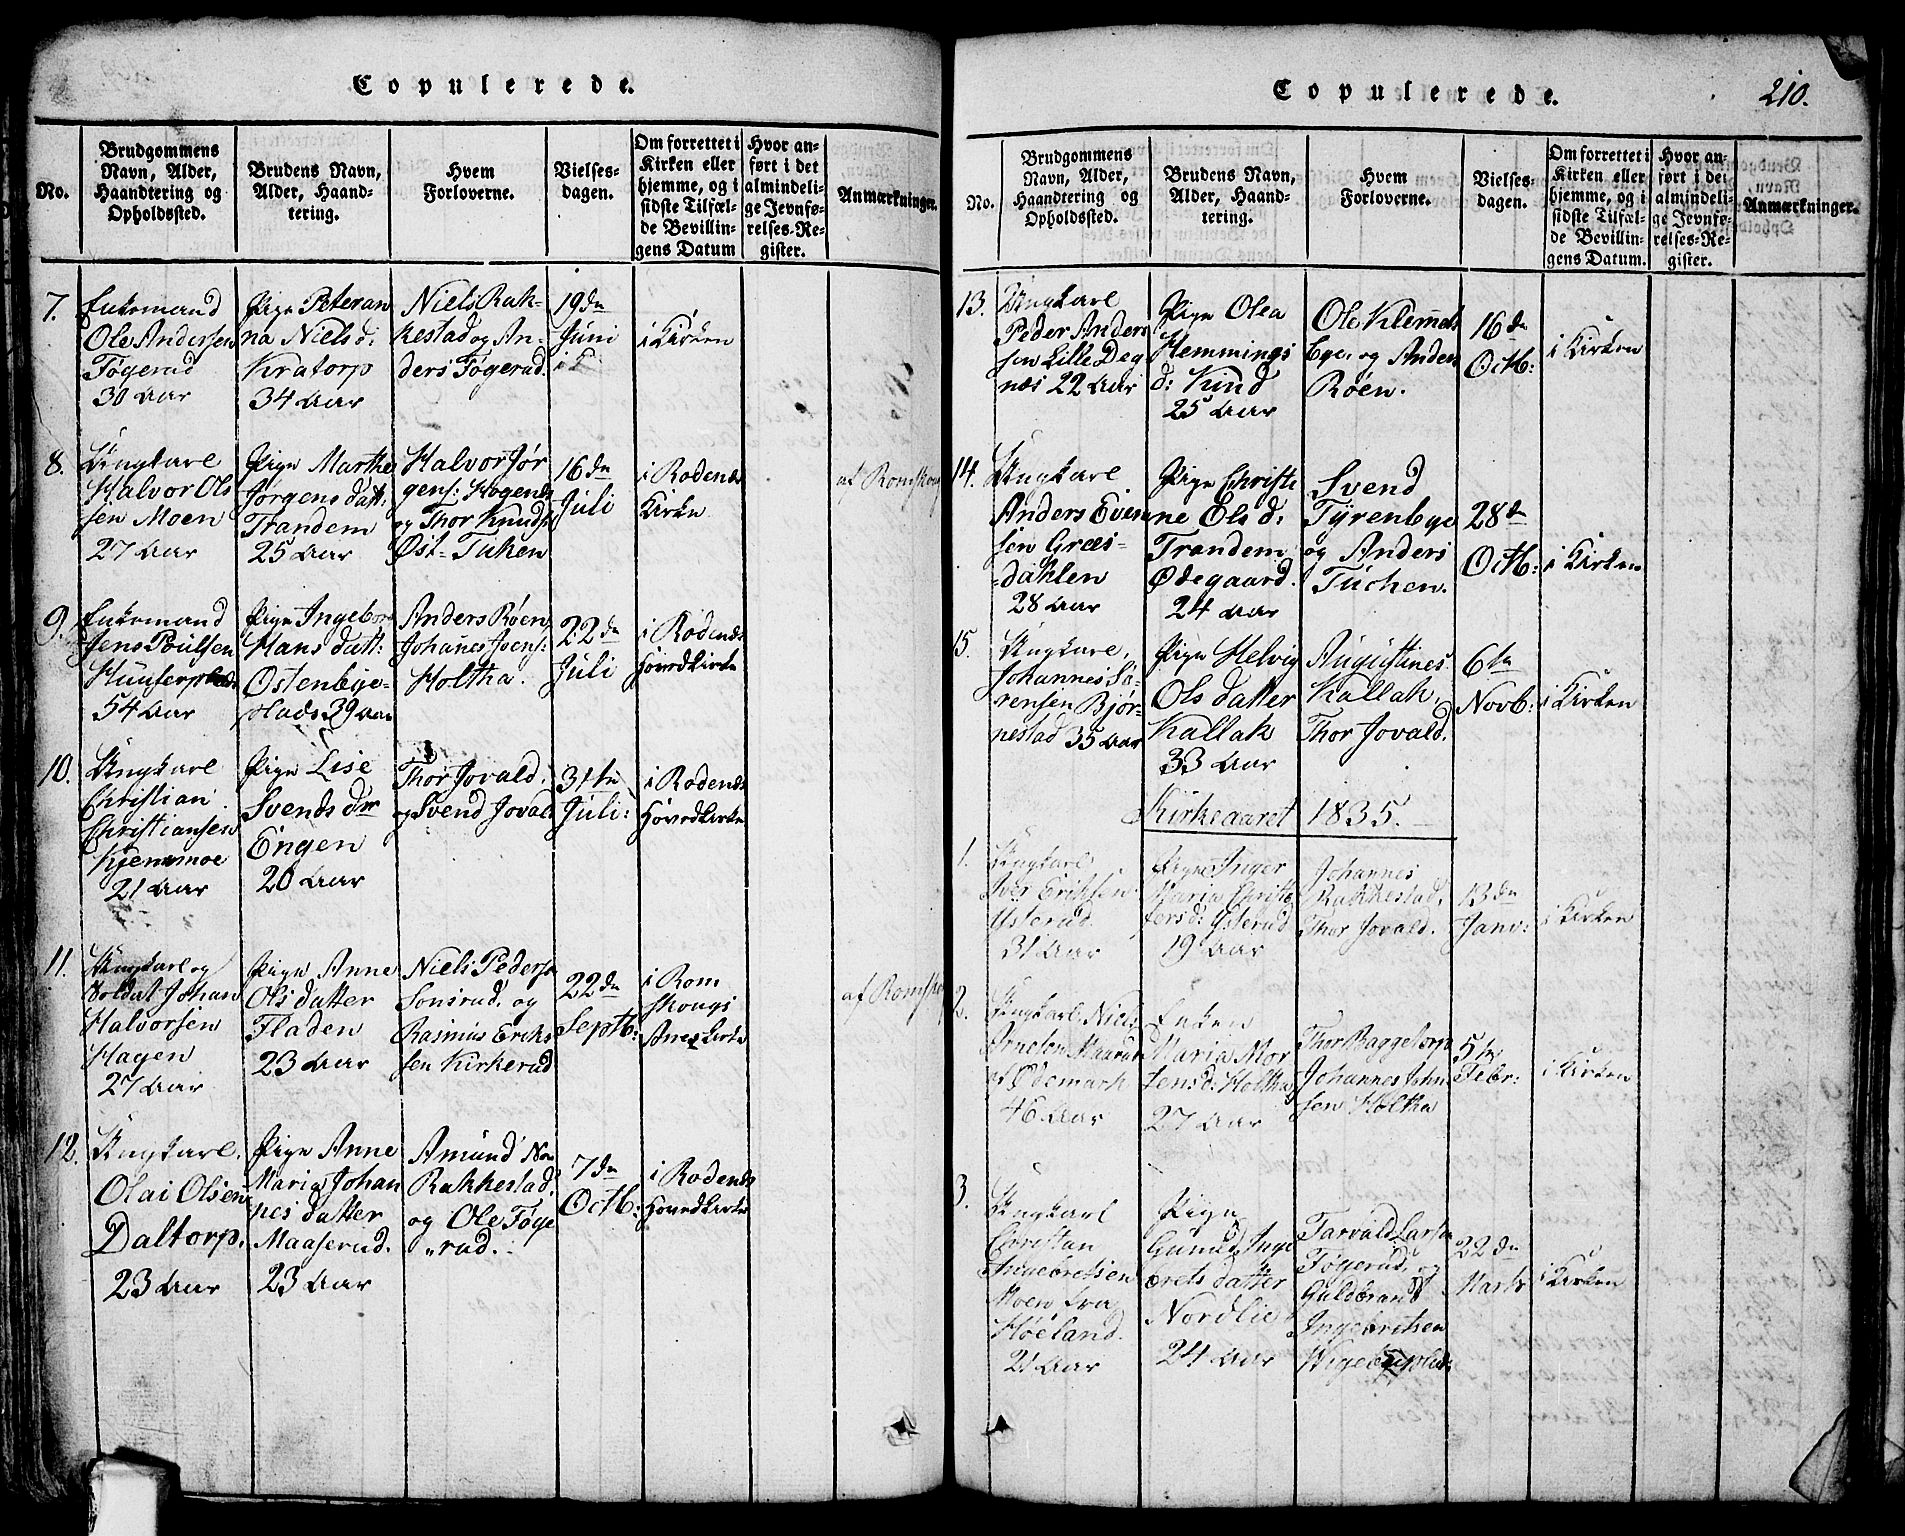 Copulerede.
No.
Brudgommens
Navn, Alder,
Haandtering og
Opholdssted.
Brudens Navn,
Alder, Haand-
tering.
Hvem
Forloverne.
Vielses-
dagen.
Om forrettet i
Kirken eller
hjemme, og i
sidste Tilfæl-
de Bevillin-
gens Datum
Hvor an-
ført i det
almindeli-
ge Jevnfø-
relses-Re-
gister.
Anmærkninger.
7.
Enkemand
Ole Andersen
Tøgerud
30 Aar
Pige Peteran
na Niels d:
Kratorp
34 Aar
Niels Rak-
kestad og An-
ders Tøgerud.
19de
Juni
i Kirken
8.
Ungkarl
Halvor Ols
sen Moen
27 Aar
Pige Marthe
Jørgens datt:
Trandem
25 Aar
Halvor Jør
gens: Hogenes
og Thor Knuds:
Øst-Tuken
16de
Juli
i Rødenes
Kirke
af Romskog
9.
Enkemand
Jens Poulsen
54 Aar
Pige Ingebor
Hans datt:
Ostenbye-
plads 39 Aar
Anders Røen
Johanes Joens:
Holtha.
22de
Juli
i Rødenes
Hovedkirke
10.
Ungkarl
Christian
Christiansen
Kjemmoe
21 Aar
Pige Lise
Svends dtr
Engen
20 Aar
Thor Jovald.
og Svend Jovald
31te
Juli:
i Rødenes
Hovedkirke
11.
Ungkarl og
Soldat Johan
Halvorsen
Hagen
27 Aar
Pige Anne
Ols datter
Fladen
23 Aar
Niels Peders:
Sonsrud, og
Rasmus Eriks
sen Kirkerud
22de
Septb:
i Rom
skougs
Anexkirke
af Romsko
12.
Ungkarl.
Olai Olsen
Daltorp.
23 Aar
Pige Anne
Maria Johan
nes datter
Maaserud.
23 Aar
Amund
Rakkestad.
og Ole Tøge
"rud.
7de
Octb:
i Rødenes
Hovedkirke
Copulerede.
210.
No.
Brudgommens
Navn, Alder,
Haandtering og
Opholdssted.
Brudens Navn,
Alder, Haand-
tering.
Hvem
Forloverne.
Vielses-
dagen.
Om forrettet i
Kirken eller
hjemme, og i
sidste Tilfæl-
de Bevillin-
gens Datum.
Hvor an-
ført i det
almindeli-
ge Jevnfø-
relses-Re-
gister.
Anmærkninger.
13.
Ungkarl
Peder Anders
sen Lille Deg
næs 22 Aar
Pige Olea
Hemmings
d: Kind
25 Aar
Ole Klemets
Bye, og Anders
Røen.
16de
Octb:
i Kirken
14.
Ungkarl
Anders Even
sen Græs-
-dahlen
28 Aar
Pige Christi
ne Els d:
Trandem
Ødegaard.
24 Aar
Svend
Tyrenbye
og Anders
Tuchen.
28de
Octb:
i Kirken
15.
Ungkarl,
Johannes Sø-
rensen Bjør-
nestad 35 Aar
Pige Helvig
Ols datter
Kallak
33 Aar
Augustines
Kallak,
Thor Jovald.
6te
Novb:
i Kirken
Kirkeaaret 1835.
1.
Ungkarl
Iver Eriksen
Ysterud
31 Aar
Pige Inger
Maria Christo
fersd: Ysterud
19 Aar
Johannes
Rakkestad.
Thor Jovald.
13de
Janv:
i Kirken
2.
Ungkarl Niels
Arnesen
af Ødemark
46 Aar
Enken
Maria Mor
tensd: Holtha
27 Aar
Thor Baggetorp
Johannes John
sen Holtha
5te
Febr:
i Kirken
3.
Ungkarl
Christian
Ingebretsen
Moen fra
Høeland.
21 Aar
Pige
Gunild Inge
brets datter
Nordlie
24 Aar
Tarvald Larsen
Tøgerud, og
Guldbrand
Ingebretsen
22de
Marts
i Kirken